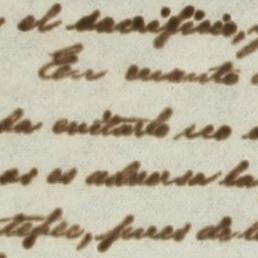 el sacrificio,
En cuanto
da evitarlo no
os es adversa la
tepec, pues de l